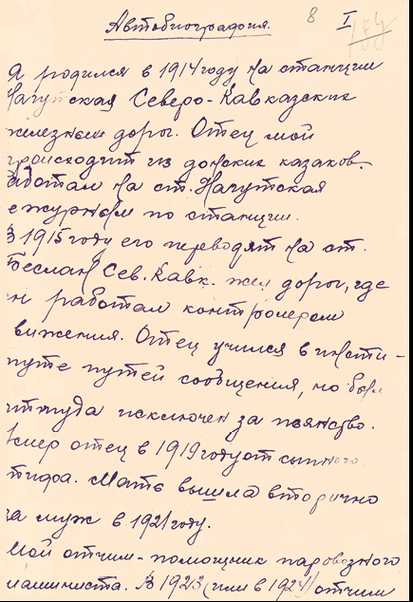 8 I
Автобиография.
Я родился в 1914 году на станции
Нагутская Северо-Кавказских
железных дорог. Отец мой
происходит из донских казаков.
Работал на ст. Нагутская
ежурным по станции.
В 1915 году его переводят на ст.
Беслан Сев. Кавк. жел дорог, где
он работал контролером
вижения. Отец учился в инсти-
путе путей сообщения, но был
оттуда исключен за пьянство.
Умер отец в 1919 году от сыпного
тифа. Мать вышла вторично
за муж в 1921 году.
Мой отчим - помощник паровозного
машиниста. В 1923 (или в 1924) отчим